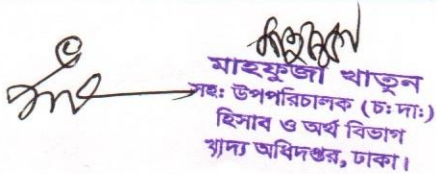 মাহফুজা খাতুন
সহ: উপপরিচালক (চ: দা:)
হিসাব ও অর্থ বিভাগ
খাদ্য অধিদপ্তর, ঢাকা।